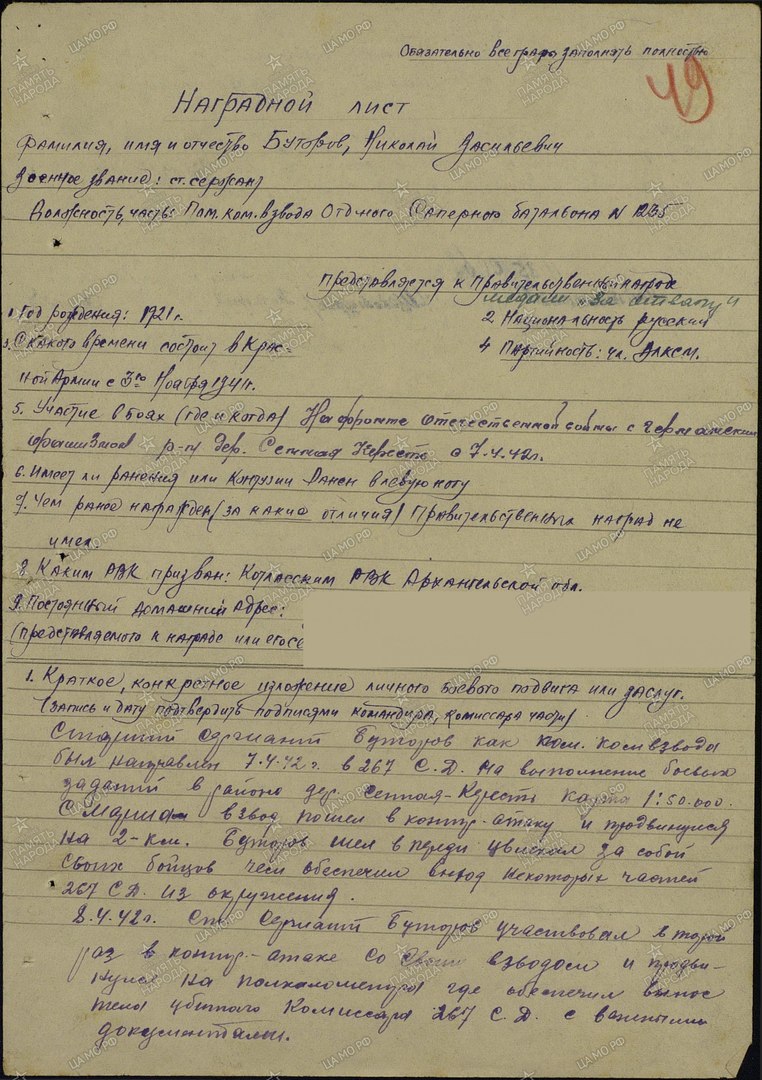 Обязательно все графы заполнять полностью
49
Наградной лист
Фамилия, имя и отчество Буторов, Николай Васильевич
Военное звание: ст. сержант
Должность, часть: Пом. ком. взвода Отдчного Саперного батальона N 1235
Представляется к Правительственный награде
медали "За отвагу"
1. Год рождения: 1921 г.
2. Национальность русский
3. С какого времени состоит в Крас-
4. Партийность: чл. ВЛКСМ.
ной Армии с 3го Ноября 1941 г.
5. Участие в боях (где и когда) На фронте отечественной войны с германским
фашизмом р-н дер. Сенная Кересть с 7.4.42 г.
6. Имеет ли ранения или контузии Ранен в левую ногу
7. Чем ранее награжден (за какие отличия) Правительственных наград не
имел
8. Каким РВК призван: Котласским РВК Архангельской обл.
9. Постоянный домашний адрес:
(представляемого к награде или его се
1. Краткое, конкретное изложение личного боевого подвига или заслуг.
(Запись и дату подтвердить подписями командира, комиссара части)
Старший Сержант Буторов как пом. комвзвода
был направлен 7.4.42 г. в 267 С.Д. на выполнение боевых
заданий в районе дер. Сенная-Кересть карта 1:50.000.
С марша взвод пошел в контр-атаку и продвинулся
на 2-км. Буторов шел в переди увлекая за собой
своих бойцов чем обеспечил вывод некоторых частей
267 С.Д. из окружения.
8.4.42 г. Ст. Сержант Буторов участвовал второй
раз в контр-атаке со своим взводом и продви-
нулся на полкилометра где обеспечил вынос
тела убитого Комиссара 267 С.Д. с важными
документами.